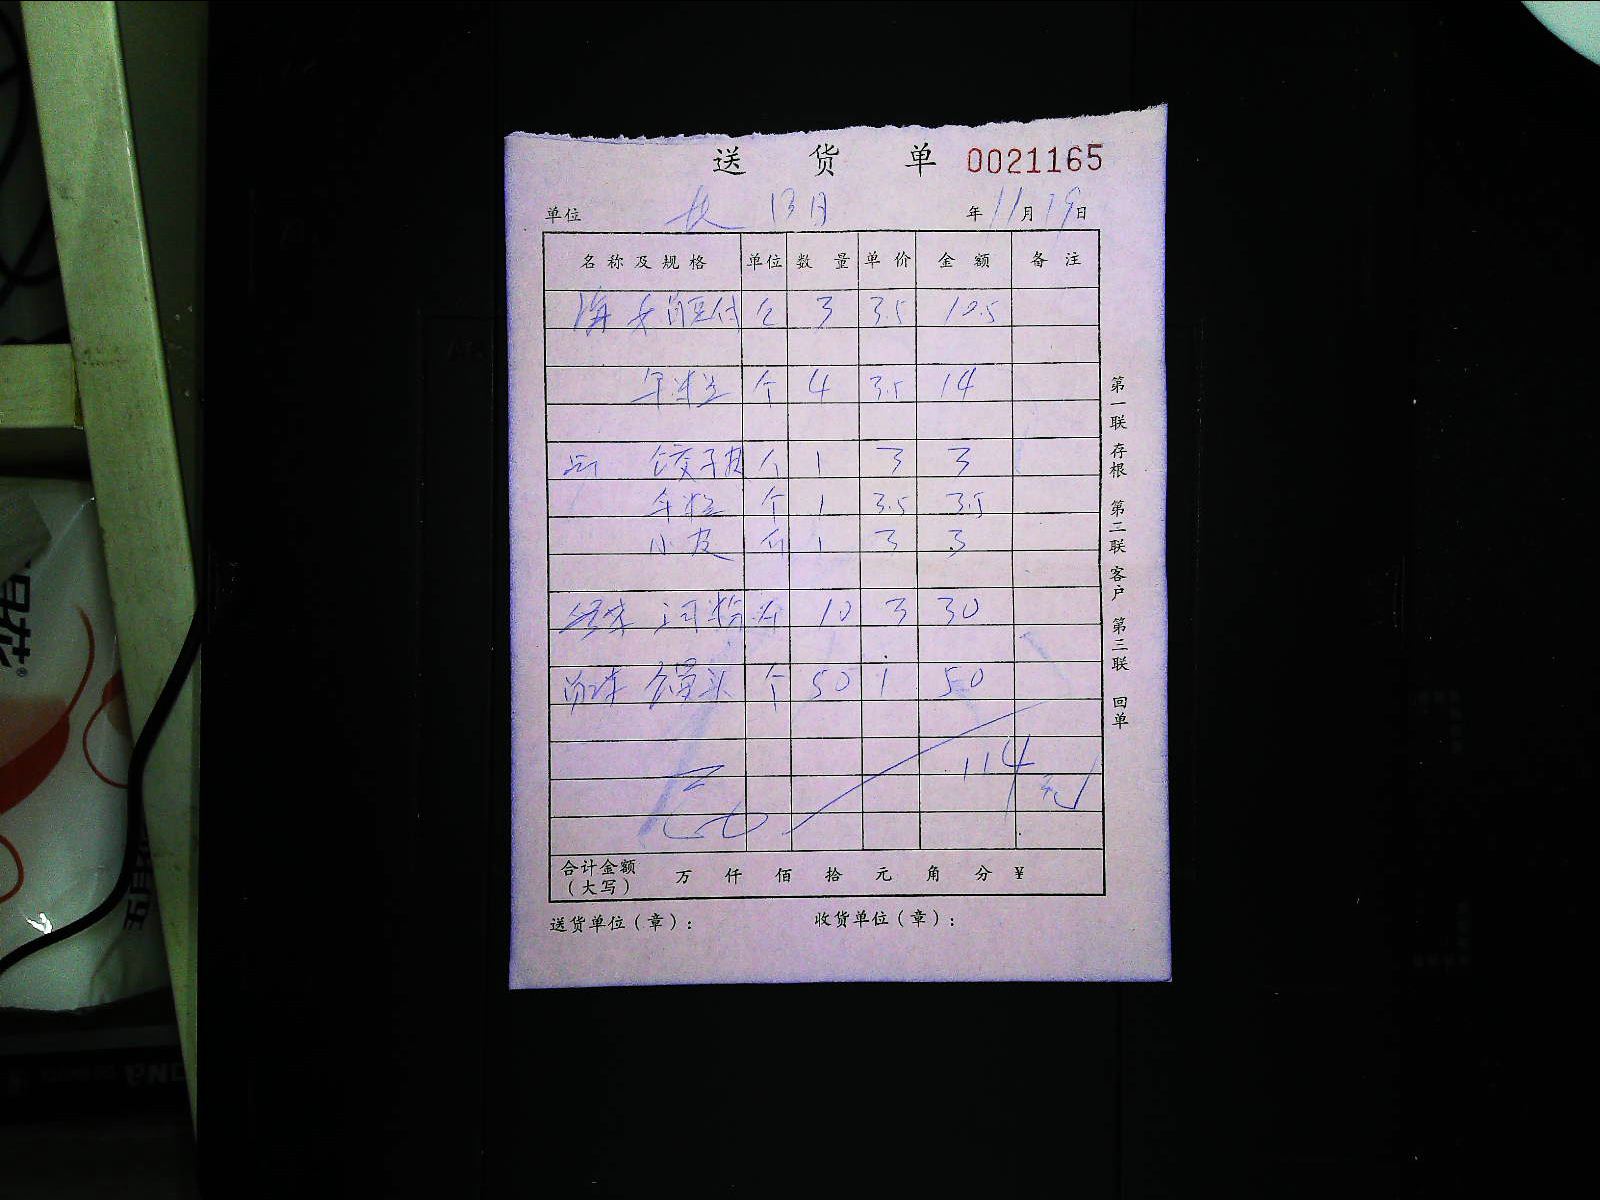 送 货 单 0021165
单位 年 11 月 19 日
名称及规格 单位 数量 单价 金额 备注
3 3.5 10.5
个 4 3.5 14
饺子皮 个 1 3 3
个 1 3.5 3.5
小皮 1 3 3
河粉 10 3 30
馒头 个 50 1 50
114元
合计金额（大写） 万 仟 佰 拾 元 角 分 ¥
送货单位（章）： 收货单位（章）：
第一联 存根 第二联 客户 第三联 回单